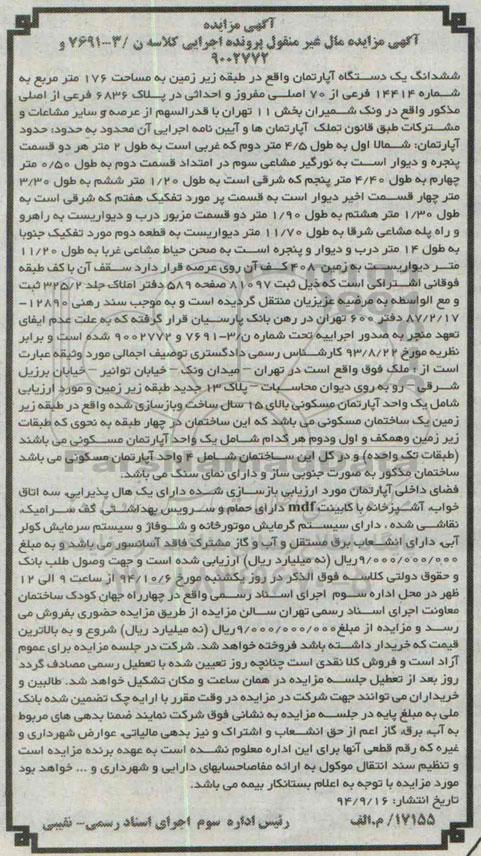 آگهی مزایده
آگهی مزایده مال غیر منقول پرونده اجرایی کلاسه ن /۳-۷۶۹۱ و
۹۰۰۲۷۷۲
ششدانگ یک دستگاه آپارتمان واقع در طبقه زیر زمین به مساحت ۱۷۶ متر مربع به
شماره ۱۴۴۱۴ فرعی از ۷۰ اصلی مفروز و احداثی در پلاک ۶۸۳۶ فرعی از اصلی
مذکور واقع در ونک شمیران بخش ۱۱ تهران با قدرالسهم از عرصه و سایر مشاعات و
مشترکات طبق قانون تملک آپارتمان ها و آیین نامه اجرایی آن محدود به حدود: حدود
آپارتمان: شمالا اول به طول ۴/۵ متر دوم که غربی است به طول ۲ متر هر دو قسمت
پنجره و دیوار است به نورگیر مشاعی سوم در امتداد قسمت دوم به طول ۰/۵۰ متر
چهارم به طول ۴/۴۰ متر پنجم که شرقی است به طول ۱/۲۰ متر ششم به طول ۳/۳۰
متر چهار قسمت اخیر دیوار است به قسمت پر مورد تفکیک هفتم که شرقی است به
طول ۱/۳۰ متر هشتم به طول ۱/۹۰ متر دو قسمت مزبور درب و دیواریست به راهرو
و راه پله مشاعی شرقا به طول ۱۱/۷۰ متر دیواریست به قطعه دوم مورد تفکیک جنوبا
به طول ۱۴ متر درب و دیوار و پنجره است به صحن حیاط مشاعی غربا به طول ۱۱/۲۰
متر دیواریست به زمین ۴۰۸ که آن روی عرصه قرار دارد سقف آن با کف طبقه
فوقانی اشتراکی است که ذیل ثبت ۸۱۰۹۷ صفحه ۵۸۹ دفتر املاک جلد ۳۲۵/۲ ثبت
و مع الواسطه به مرضیه عزیزیان منتقل گردیده است و به موجب سند رهنی ۱۲۸۹۰-
۸۷/۲/۱۷ دفتر ۶۰۰ تهران در رهن بانک پارسیان قرار گرفته که به علت عدم ایفای
تعهد منجر به صدور اجراییه تحت شماره ن/۳-۷۶۹۱ و ۹۰۰۲۷۷۲ شده است و برابر
نظریه مورخ ۹۳/۸/۲۲ کارشناس رسمی دادگستری توصیف اجمالی مورد وثیقه عبارت
است از : ملک فوق واقع است در تهران - میدان ونک - خیابان توانیر - خیابان برزیل
شرقی - رو به روی دیوان محاسبات - پلاک ۱۳ جدید طبقه زیر زمین و مورد ارزیابی
شامل یک واحد آپارتمان مسکونی بالای ۱۵ سال ساخت وبازسازی شده واقع در طبقه زیر
زمین یک ساختمان مسکونی می باشد که این ساختمان در چهار طبقه به نحوی که طبقات
زیر زمین وهمکف و اول ودوم هر کدام شامل یک واحد آپارتمان مسکونی می باشند
(طبقات تک واحده) و در کل این ساختمان شامل ۴ واحد آپارتمان مسکونی می باشد
ساختمان مذکور به صورت جنوبی ساز و دارای نمای سنگ می باشد.
فضای داخلی آپارتمان مورد ارزیابی بازسازی شده دارای یک هال پذیرایی، سه اتاق
خواب، آشپزخانه با کابینت mdf دارای حمام و سرویس بهداشتی، کف سرامیک،
نقاشی شده ، دارای سیستم گرمایش موتورخانه و شوفاژ و سیستم سرمایش کولر
آبی، دارای انشعاب برق مستقل و آب و گاز مشترک فاقد آسانسور می باشد، و به مبلغ
۹/۰۰۰/۰۰۰/۰۰۰ریال (نه میلیارد ریال) ارزیابی شده است و جهت وصول طلب بانک
و حقوق دولتی کلاسه فوق الذکر در روز یکشنبه مورخ ۹۴/۱۰/۶ از ساعت ۹ الی ۱۲
ظهر در محل اداره سوم اجرای اسناد رسمی واقع در چهارراه جهان کودک ساختمان
معاونت اجرای اسناد رسمی تهران سالن مزایده از طریق مزایده حضوری بفروش می
رسد و مزایده از مبلغ۹/۰۰۰/۰۰۰/۰۰۰ریال (نه میلیارد ریال) شروع و به بالاترین
قیمت که خریدار داشته باشد فروخته خواهد شد. شرکت در جلسه مزایده برای عموم
آزاد است و فروش کلا نقدی است چنانچه روز تعیین شده با تعطیل رسمی مصادف گردد
روز بعد از تعطیل جلسه مزایده در همان ساعت و مکان تشکیل خواهد شد. طالبین و
خریداران می توانند جهت شرکت در مزایده در وقت مقرر با ارایه چک تضمین شده بانک
ملی به مبلغ پایه در جلسه مزایده به نشانی فوق شرکت نمایند ضمنا بدهی های مربوط
به آب، برق، گاز اعم از حق انشعاب و اشتراک و نیز بدهی مالیاتی، عوارض شهرداری و
غیره که رقم قطعی آنها برای این اداره معلوم نشده است به عهده برنده مزایده است
و تنظیم سند انتقال موکول به ارائه مفاصاحسابهای دارایی و شهرداری و ... خواهد بود
مورد مزایده با توجه به اعلام بستانکار بیمه می باشد.
تاریخ انتشار: ۹۴/۹/۱۶
۱۷۱۵۵/ م.الف رئیس اداره سوم اجرای اسناد رسمی- نقیبی